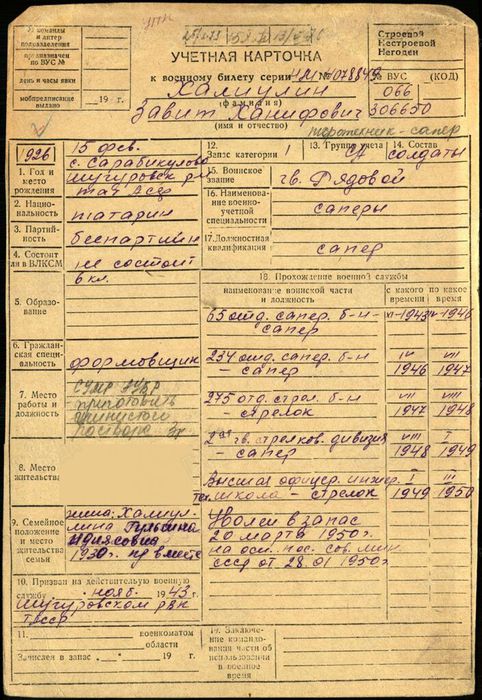 У команды
и литер
подразделения
предназначен
по ВУС №
день и часы явки
Мобпредписание
выдано
19 г.
Строевой
Нестроевой
Негоден
УЧЕТНАЯ КАРТОЧКА
к военному билету серии НМ № 078849
Хамиулин
(фамилия)
Завит Ханифович
(имя и отчество)
ВУС (КОД)
066
306650
сапер
1926
15 фев.
с. Сарабикулово
Шугуровск р-н
тат АССР
1. Год и
место
рождения
2. Нацио-
нальность
татарин
3. Партий-
ность
беспартийн
4. Состоит
ли в ВЛКСМ
не состоит
5. Образо-
вание
6 кл.
6. Гражданская спе-
циальность
формовщик
7. Место
работы и
должность
приготовить
раствора
8. Место
жительства
9. Семейное
положение
и место
жительства
семьи
жена: Хамиул-
лина Гульсина
1930 г. вместе
10. Призван на действительную военную
службу нояб. 1943 г.
Шугуровском рвк
ТАССР
11. военкоматом
области
Зачислен в запас " " 19 г.
12.
Запас категории 1
13. Группа учета
СА
14. Состав
солдаты
15. Воинское
звание
гв. Рядовой
16. Наименование
военно-учетной
специальности
саперы
17. Должностная
квалификация
сапер
18. Прохождение военной службы
наименование воинской части
и должность
с какого
времени
по какое
время
65 отд. сапер. б-н - сапер XI-1943 IV-1946
234 отд. сапер. б-н - сапер IV 1946 VII 1947
275 отд. стрел. б-н - стрелок VII 1947 VIII 1948
2ая гв. стрелков. дивизия - сапер VIII 1948 I 1949
Высшая офицер. инжен. тех. школа - стрелок I 1949 III 1950
Уволен в запас
20 марта 1950 г.
на осн. пос. сов. мин.
СССР от 28.01 1950 г.
19. Заключение
командования части
об использовании
в военное
время